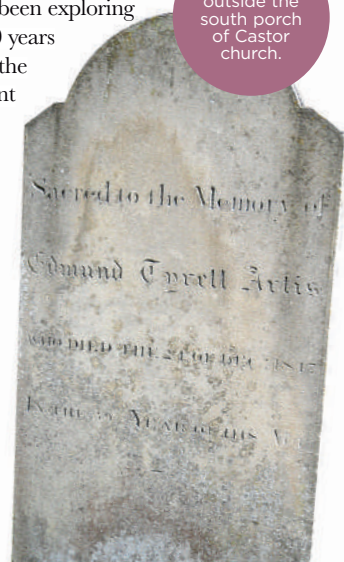 been exploring
years
the
nt
outside the
south porch
of Castor
church.
Sacred to the Memory of
Edmund Tyrell Artis
WHO DIED THE 24 OF DECR 1847
IN THE YEAR OF HIS AGE